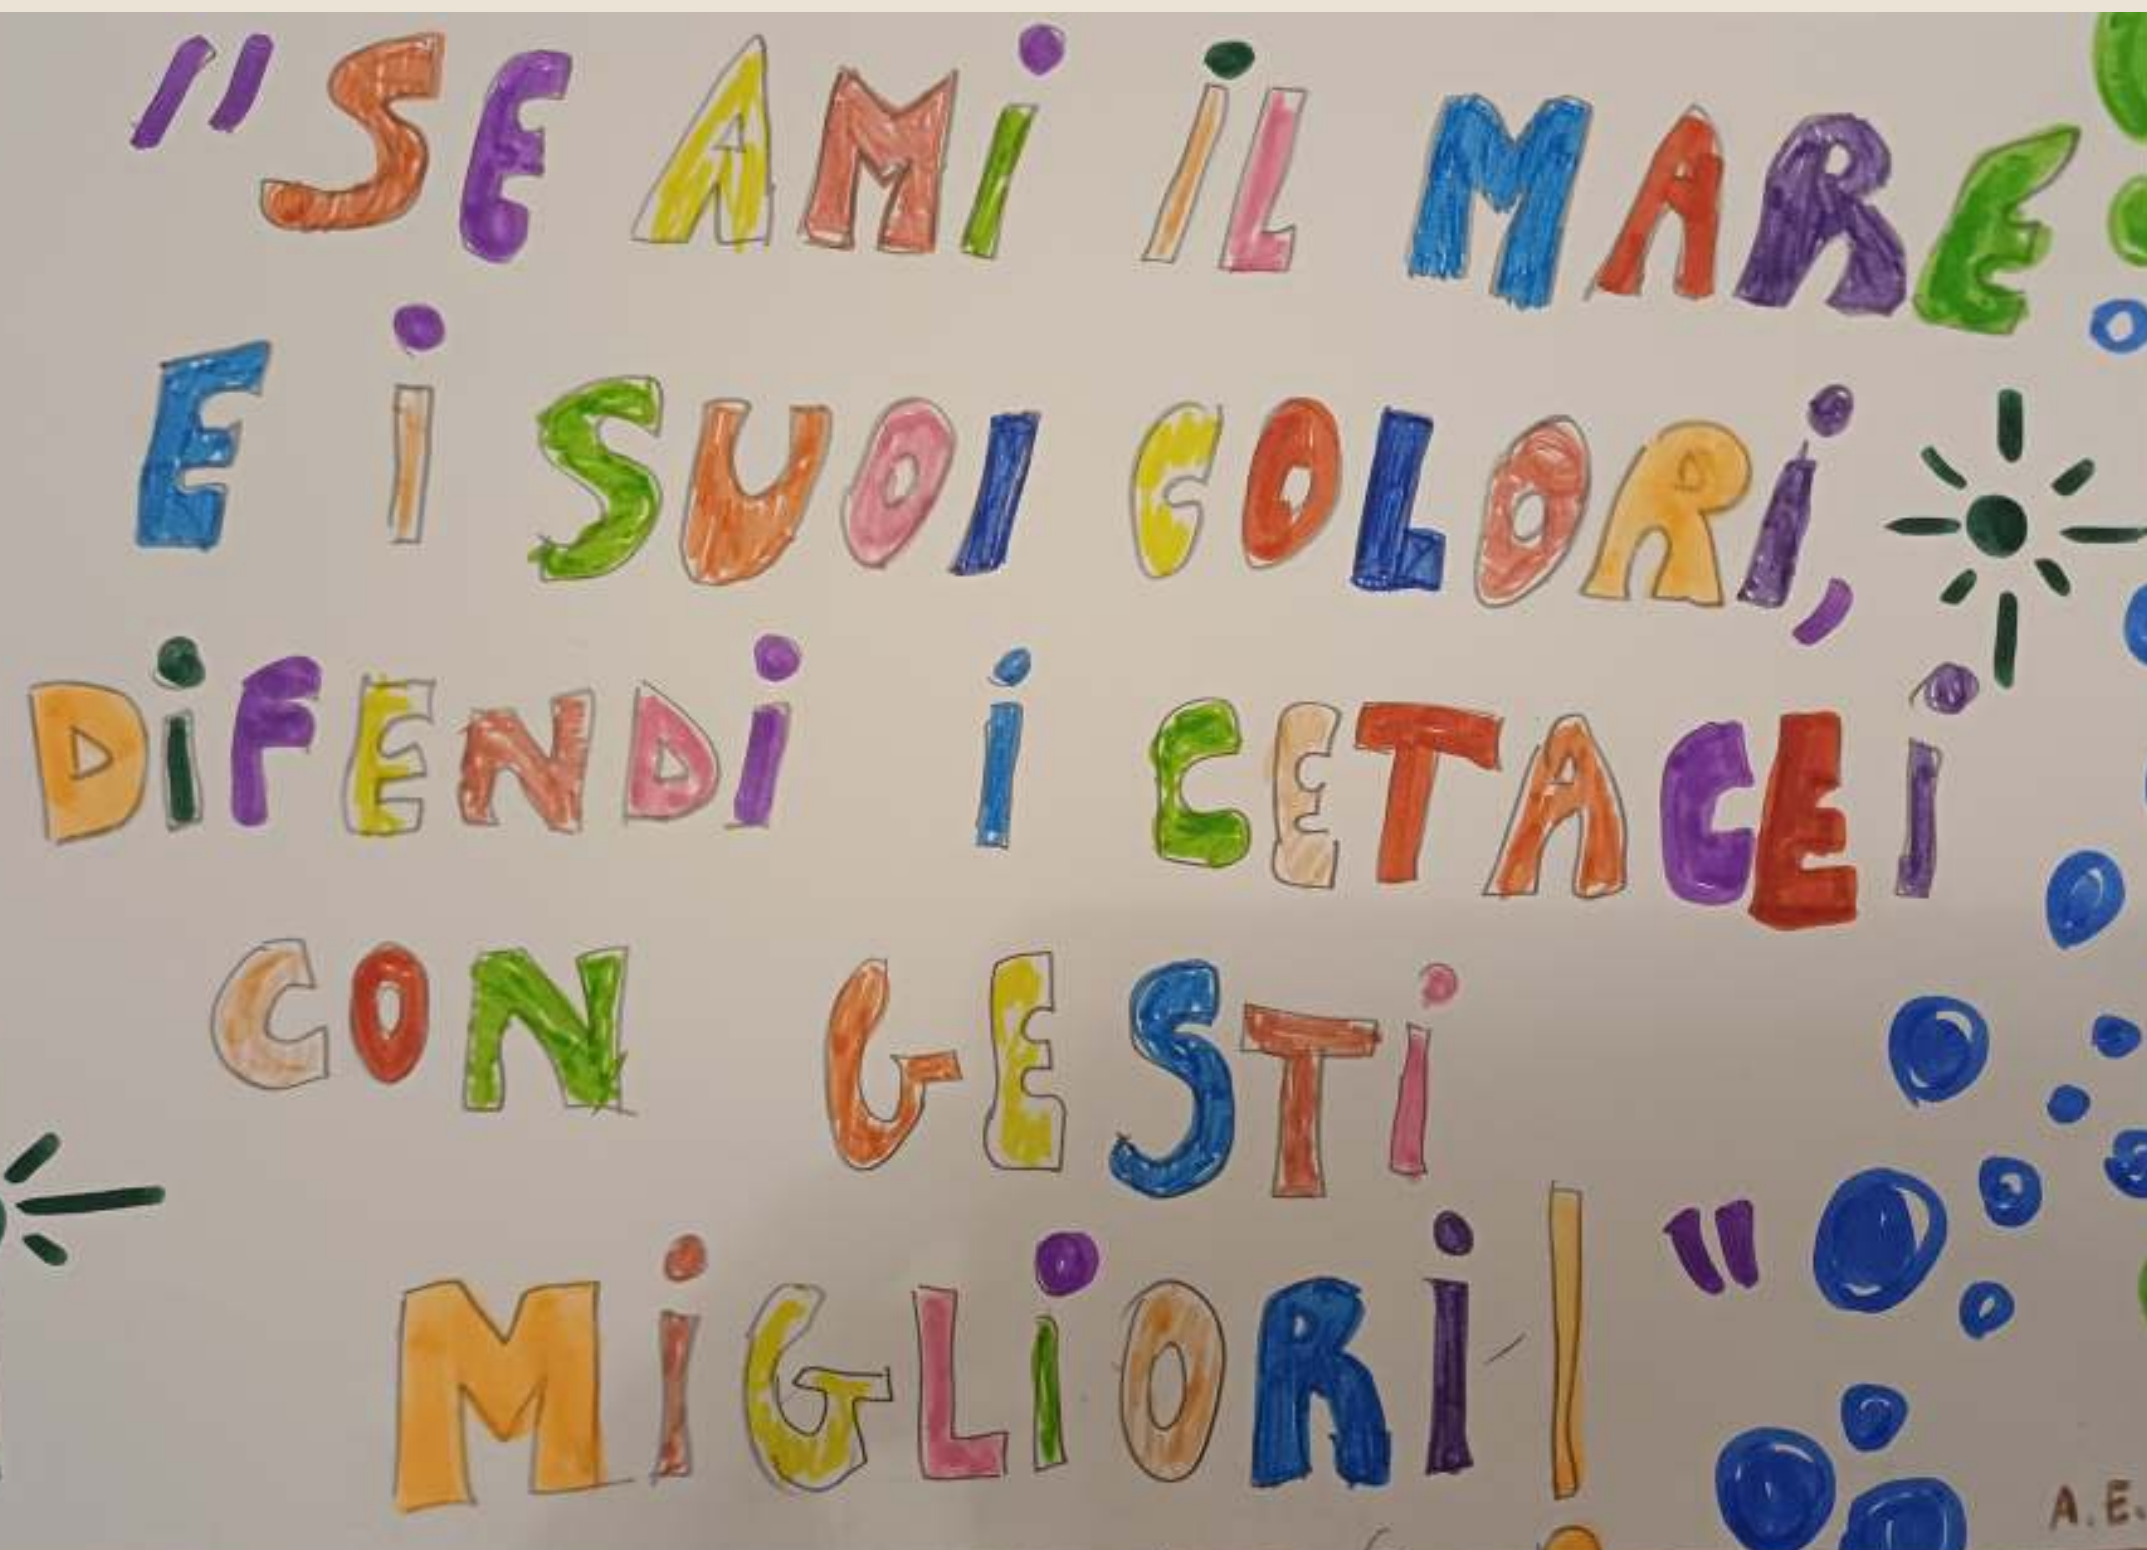 "SE AMi iL MARE
E i SUOI COLORi,
DiFENDi i CETACEi
CON GESTi
MiGLiORi!"
A.E.